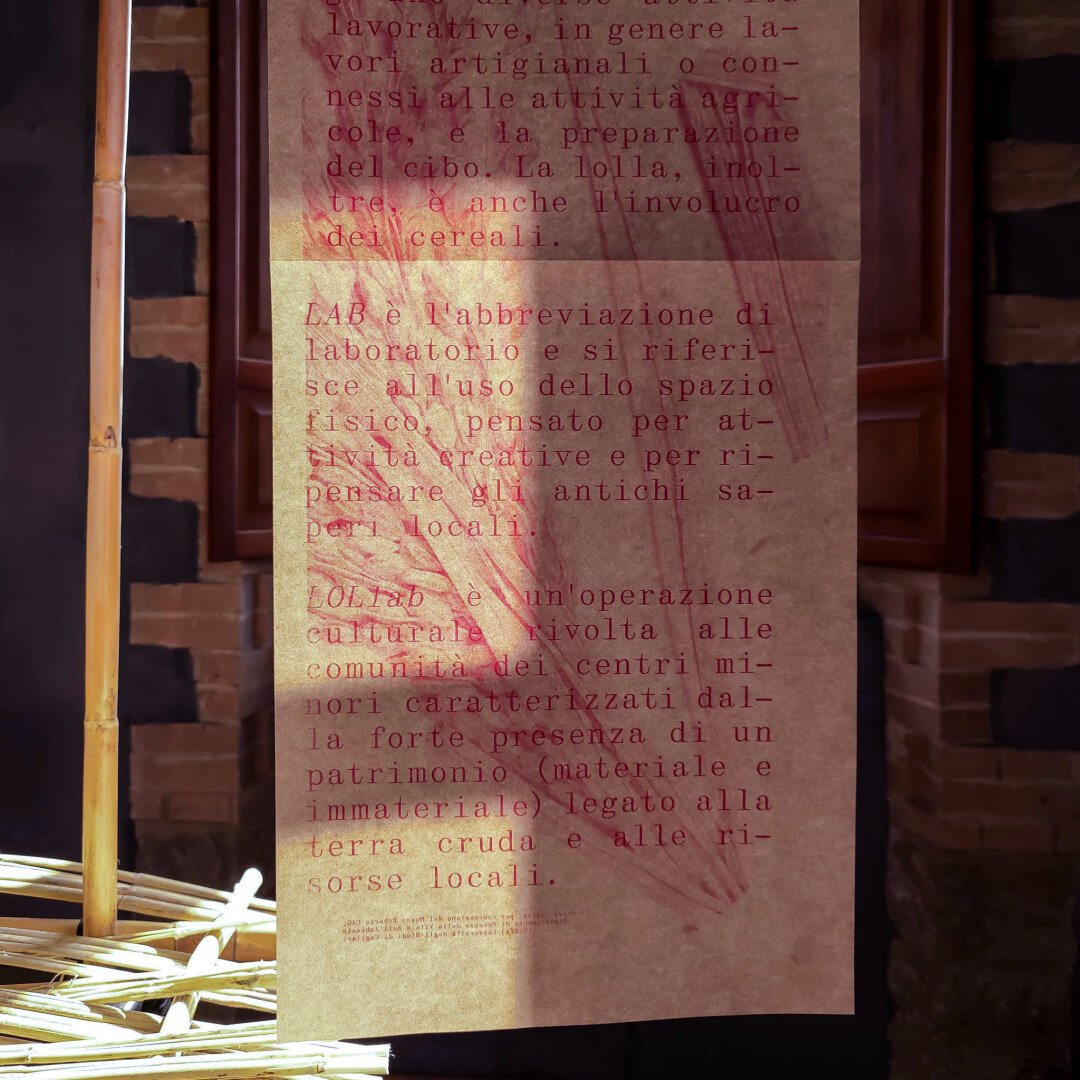 diverse attività
lavorative, in genere la-
vori artigianali o con-
nessi alle attività agri-
cole, e la preparazione
del cibo. La lolla, inol-
tre, è anche l'involucro
dei cereali.
LAB è l'abbreviazione di
laboratorio e si riferi-
sce all'uso dello spazio
fisico, pensato per at-
tività creative e per ri-
pensare gli antichi sa-
peri locali.
LOLlab è un'operazione
culturale rivolta alle
comunità dei centri mi-
nori caratterizzati dal-
la forte presenza di un
patrimonio (materiale e
immateriale) legato alla
terra cruda e alle ri-
sorse locali.
per concessione del Museo Erbario CAG,
Dipartimento di Scienze della Vita e dell'Ambiente
Università degli Studi di Cagliari